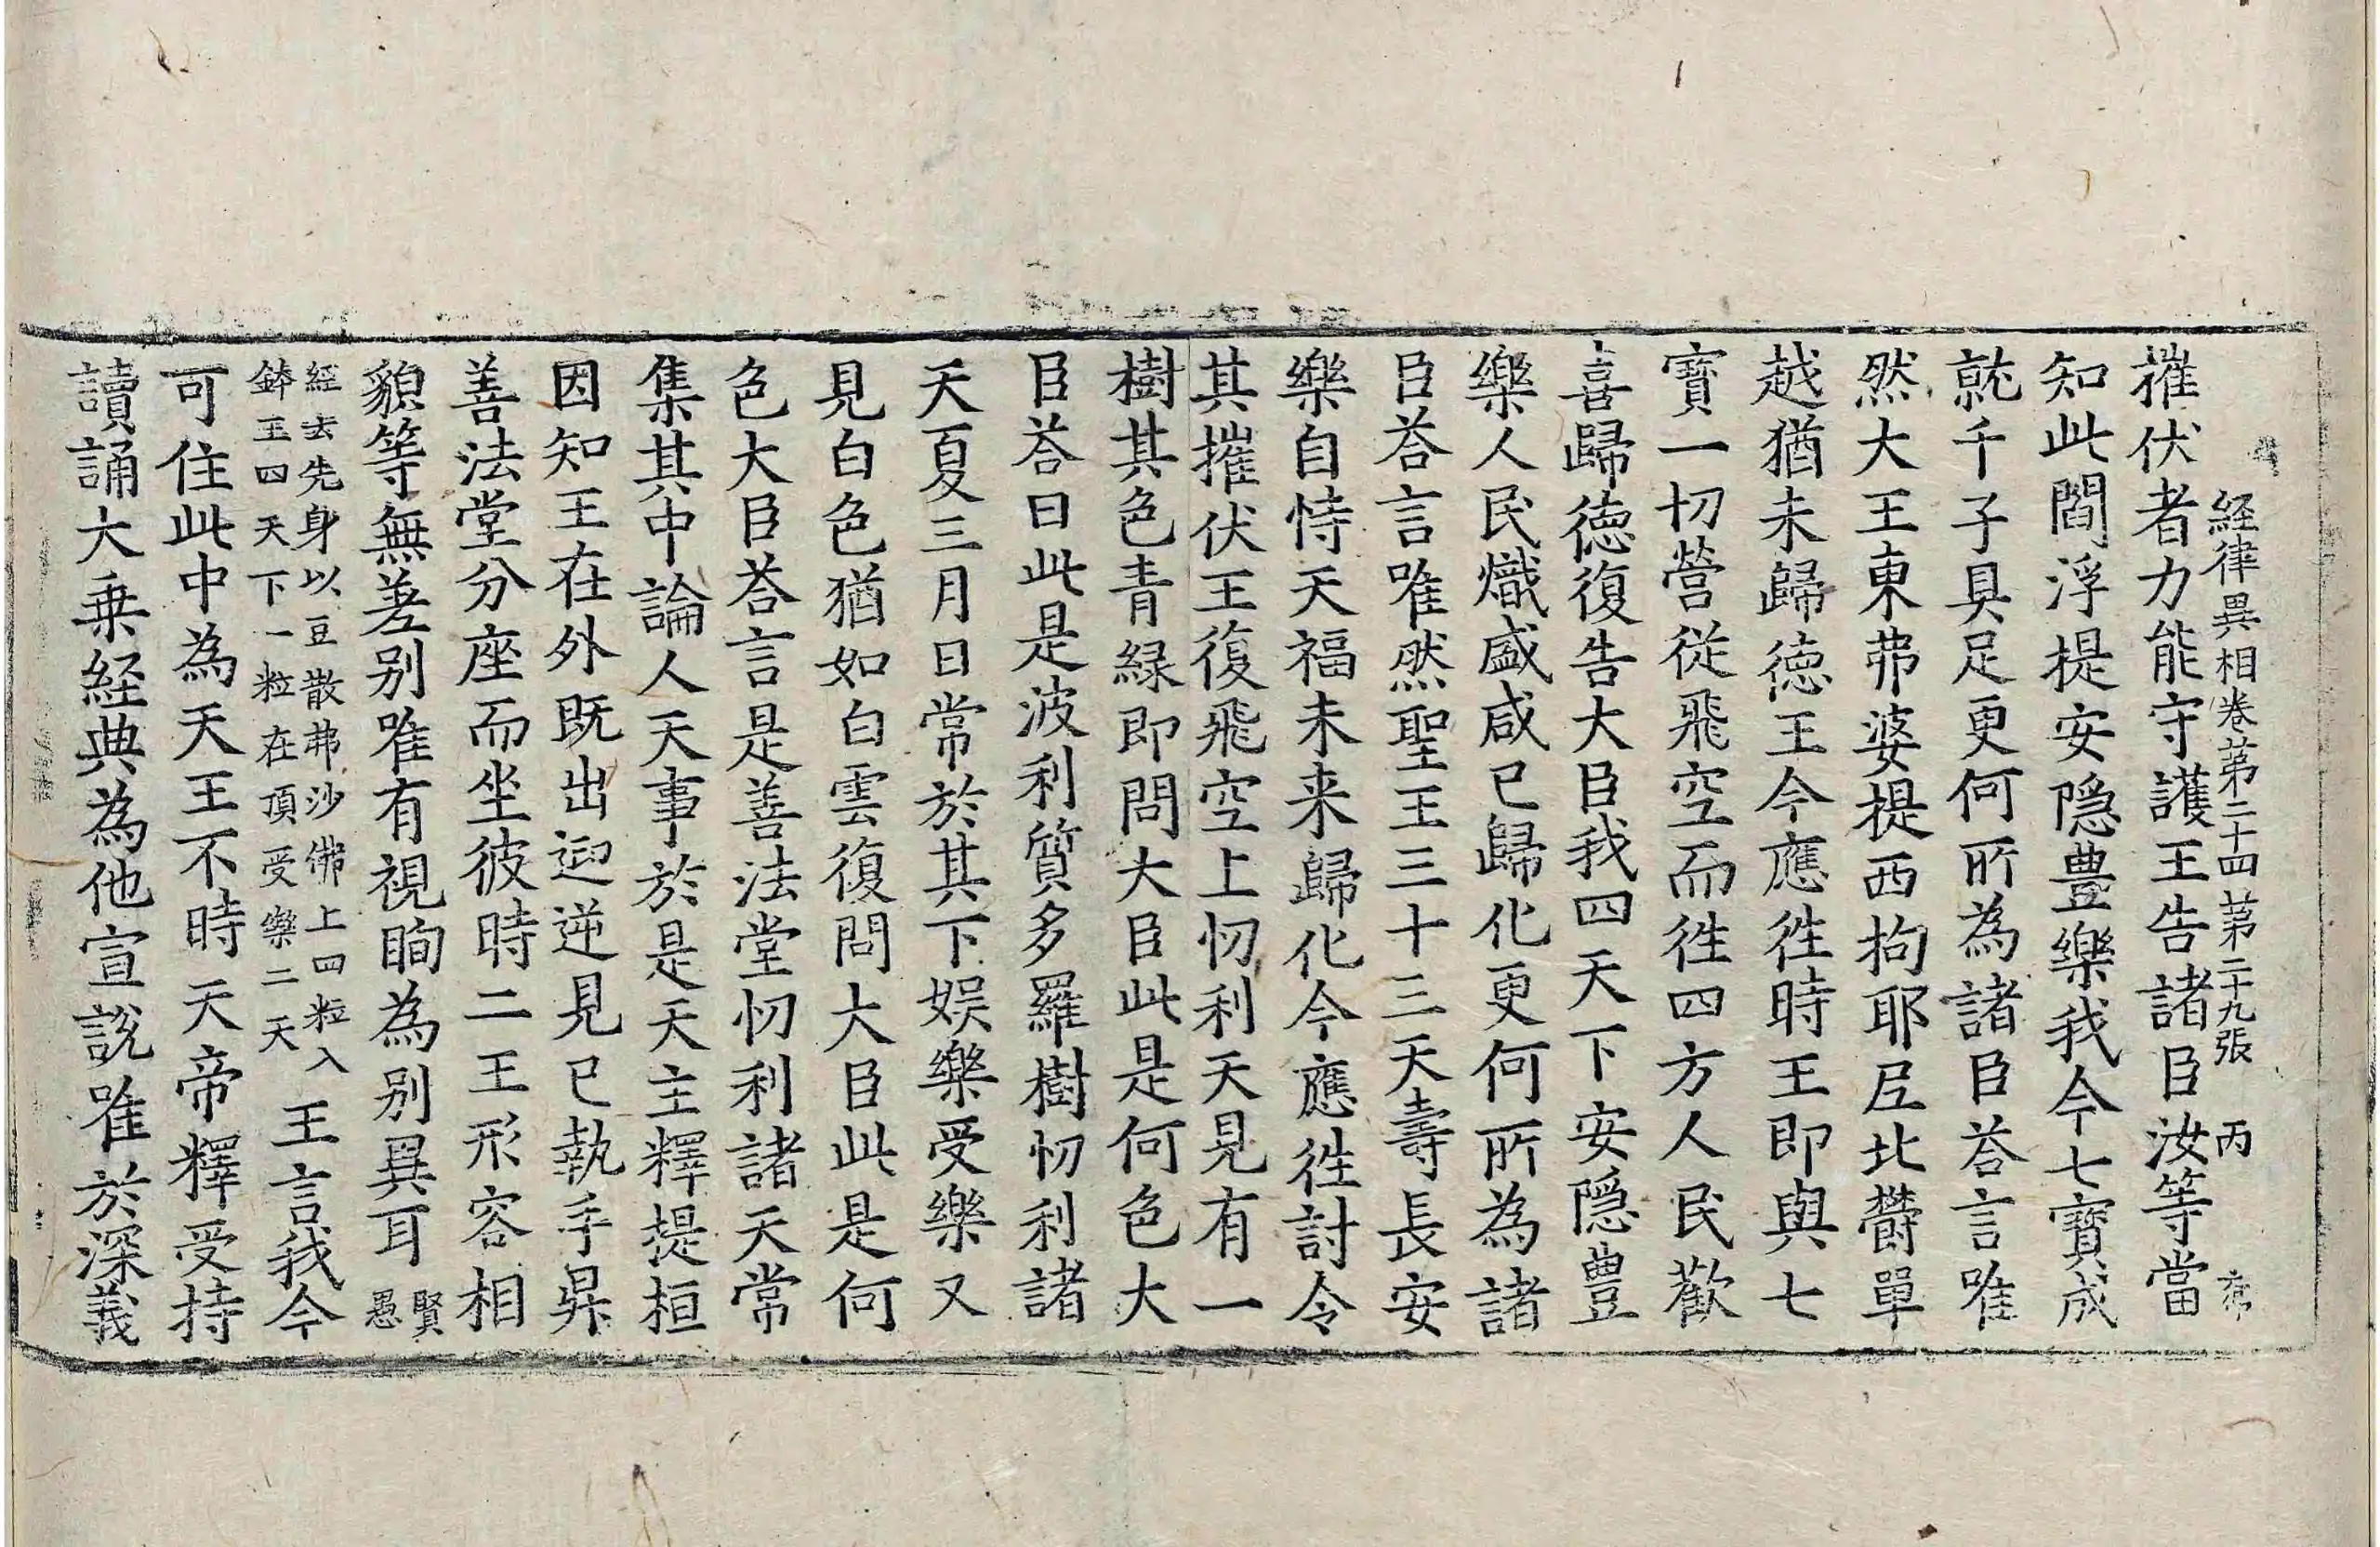 経律異相卷第二十四 第二十九張 丙
摧伏者力能守護王告諸臣汝等當
知此閻浮提安隠豊樂我今七寳成
就千子具足更何所為諸臣荅言唯
然大王東弗婆提西拘耶尼北欝單
越猶未歸徳王今應徃時王即與七
寳一切營従飛空而徃四方人民歡
喜歸徳復告大臣我四天下安隠豊
樂人民熾盛咸已歸化更何所為諸
臣荅言唯然聖王三十三天壽長安
樂自恃天福未来歸化今應徃討令
其摧伏王復飛空上忉利天見有一
樹其色青緑即問大臣此是何色大
臣荅曰此是波利質多羅樹忉利諸
天夏三月日常於其下娛樂受樂又
見白色猶如白雲復問大臣此是何
色大臣荅言是善法堂忉利諸天常
集其中論人天事於是天主釋提桓
因知王在外既出迎逆見已執手昇
善法堂分座而坐彼時二王形容相
貌等無差别唯有視眴為别異耳 賢愚
經去先身以豆散弗沙佛上四粒入
鉢王四天下一粒在頂受樂二天
王言我今
可住此中為天王不時天帝釋受持
讀誦大乗経典為他宣說唯於深義